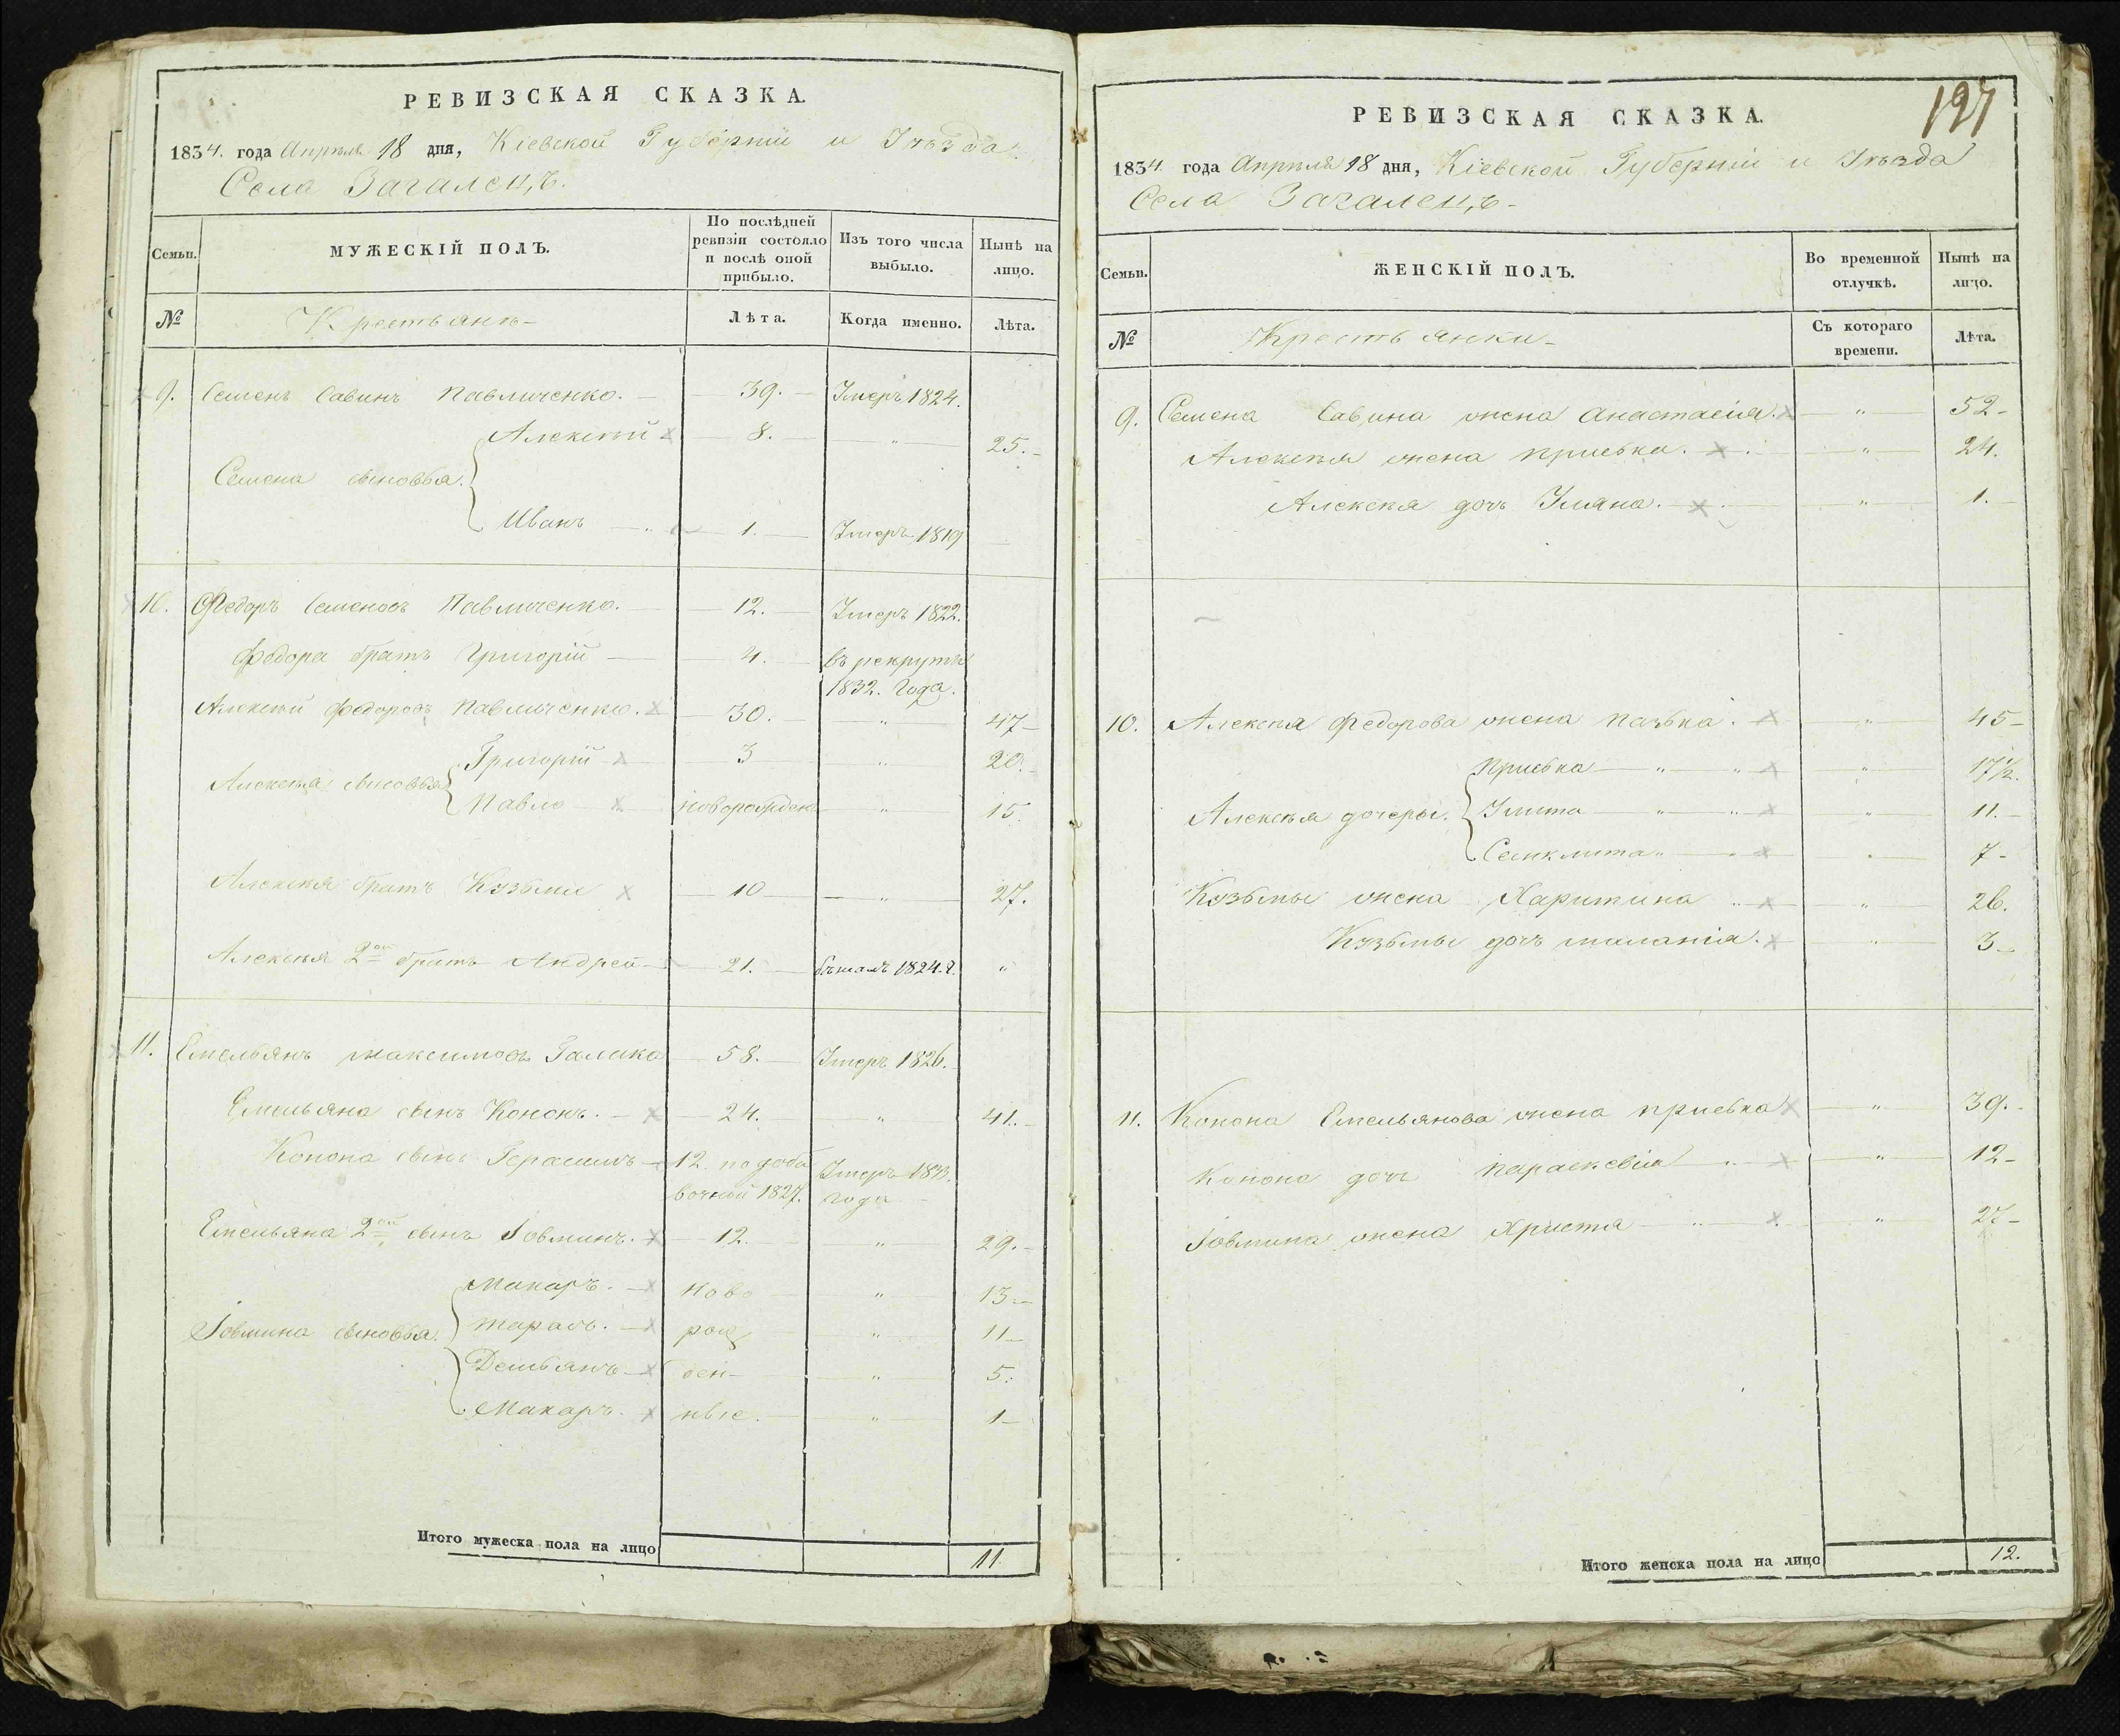 РЕВИЗСКАЯ СКАЗКА.
1834. года Апрѣля 18 дня, Кіевской Губерніи и Уѣзда.
Села Загалецъ.
Семьи. МУЖЕСКІЙ ПОЛЪ. По послѣдней ревизіи состояло и послѣ оной прибыло. Изъ того числа выбыло. Нынѣ на лицо.
№ Крестьянъ Лѣта. Когда именно. Лѣта.
9. Семенъ Савинъ Павличенко. 39. Умеръ 1824.
Алексѣй 8. " 25.
Семена сыновья.
Иванъ 1. Умеръ 1819
10. Федоръ Семеновъ Павличенко. 12. Умеръ 1822.
Федора братъ Григорій 4. въ рекруты
1832. года.
Алексѣй Федоровъ Павличенко. 30. " 47
Григорій 3 " 20.
Алексѣя сыновья
Павло новорожден " 15.
Алексѣя братъ Кузьма 10 " 27.
Алексѣя 2ой братъ Андрей 21. бѣжалъ 1824. г. "
11. Емельянъ Максимовъ Галика 58. Умеръ 1826.
Емельяна сынъ Кононъ. 24. " 41.
Конона сынъ Герасимъ 12. по доба Умеръ 1833.
вочной 1827. года
Емельяна 2ой сынъ Іовминъ. 12. " 29.
Макаръ. ново " 13
Іовмина сыновья. Тарасъ. рож " 11
Демьянъ ден- " 5.
Макаръ. ные. " 1
Итого мужеска пола на лицо 11
197
РЕВИЗСКАЯ СКАЗКА.
1834. года Апрѣля 18 дня, Кіевской Губерніи и Уѣзда
Села Загалецъ
Семьи. ЖЕНСКІЙ ПОЛЪ. Во временной отлучкѣ. Нынѣ на лицо.
№ Крестьянки Съ котораго времени. Лѣта.
9. Семена Савина жена Анастасія. " 52
Алексѣя жена Приська. " 24.
Алексѣя дочь Уляна. " 1.
10. Алексѣя Федорова жена Пазька. " 45
Приська " " " 17½.
Алексѣя дочери. Улита " " " 11.
Самклита " 7
Кузьмы жена Харитина " 26.
Кузьмы дочь Маланія. " 3
11. Конона Емельянова жена Приська " 39.
Конона дочь Параскевія " 12
Іовмина жена Христя " 27
Итого женска пола на лицо 12.